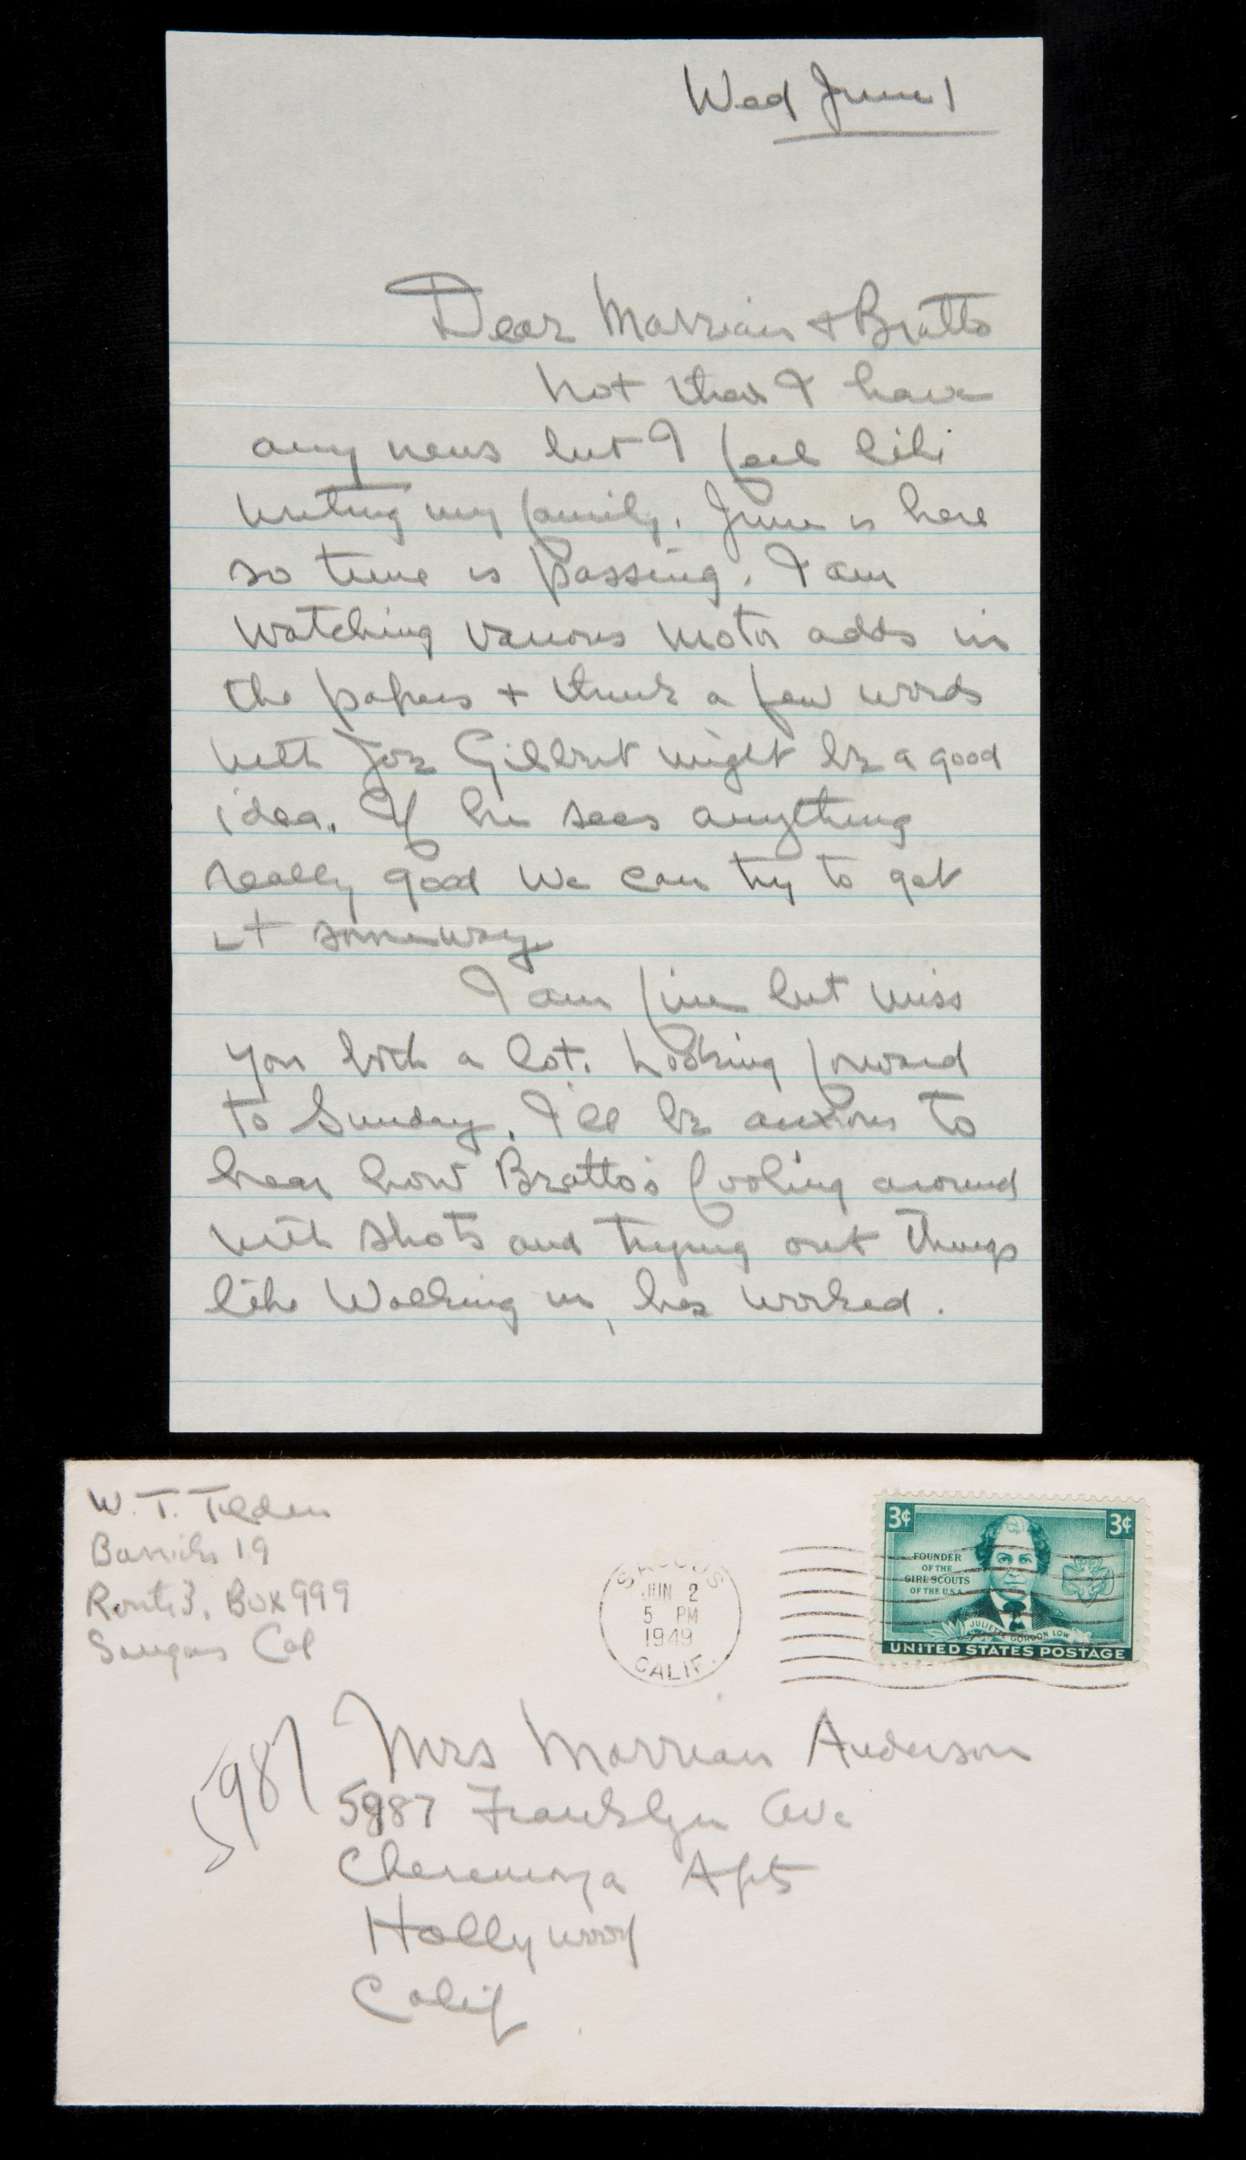 Wed June 1
Dear Marrian & Bratto
Not that I have
any news but I feel like
writing my family. June is here
so time is passing. I am
watching various motor adds in
the papers + think a few words
with Joe Gilbert might be a good
idea. If he sees anything
really good we can try to get
it someway.
I am fine but miss
you both a lot. Looking forward
to Sunday. I'll be anxious to
hear how Bratto's fooling around
with shots and trying out things
like Walking in, has worked.
W. T. Tilden
Barricks 19
Route 3, Box 999
Saugus Cal
SAUGUS
JUN 2
5 PM
1949
CALIF.
3¢ 3¢
FOUNDER
OF THE
GIRL SCOUTS
OF THE U.S.A.
JULIETTE GORDON LOW
UNITED STATES POSTAGE
5987
Mrs Marrian Anderson
5987 Franklyn Ave
Cheremoya Apts
Hollywood
Calif